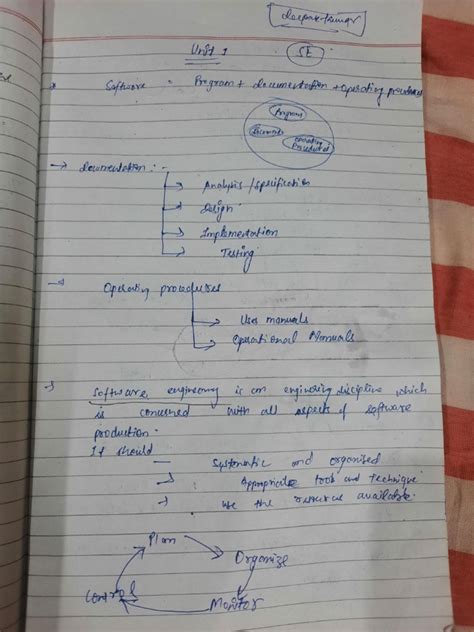 deepak kumar
Unit 1 SE
Software = Program + documentation + Operating procedures
Program
Documents
Operating Procedures
→ documentation :-
→ Analysis / specification
→ Design
→ Implementation
→ Testing
→ Operating procedures
→ Users manuals
→ Operational Manuals
→ Software engineering is an engineering discipline which
is concerned with all aspects of software
production.
It should
— systematic and organised
→ Appropriate tools and technique
→ use the resource available.
Plan
Organize
Control
Monitor